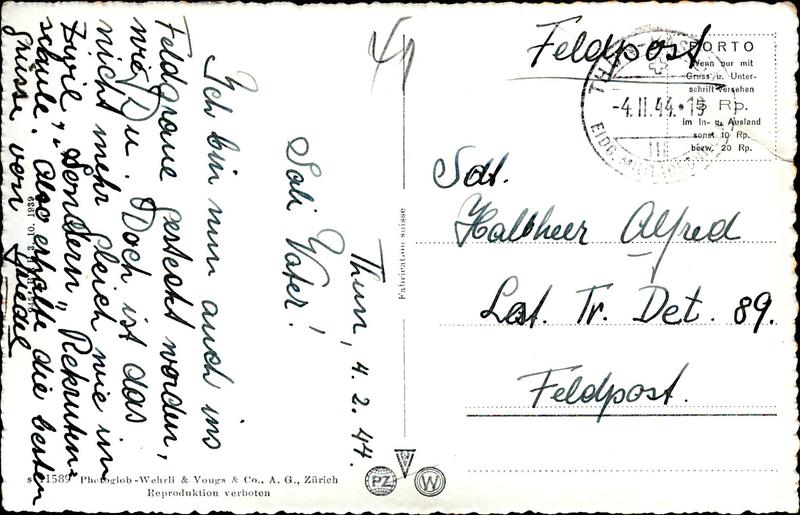 Thun, 4. 2. 44.
Sali Vater!
Ich bin nun auch ins
Feldgraue gesteckt worden,
wie Du. Doch ist das
nicht mehr gleich wie im
Zivil, "Sondern" Rekruten-
schule. Also erhalte die besten
Grüsse von
Feldpost
PORTO
Wenn nur mit
Gruss u. Unter-
schrift versehen
5 Rp.
im In- u. Ausland
sonst 10 Rp.
bezw. 20 Rp.
THUN
-4.II.44.-15
EIDG.
III
Sdt.
Halbheer Alfred
Lst. Tr. Det. 89.
Feldpost.
Fabrication Suisse
3. 10. 1939
1589 Photoglob-Wehrli & Vouga & Co., A. G., Zürich
Reproduktion verboten
PZ
W